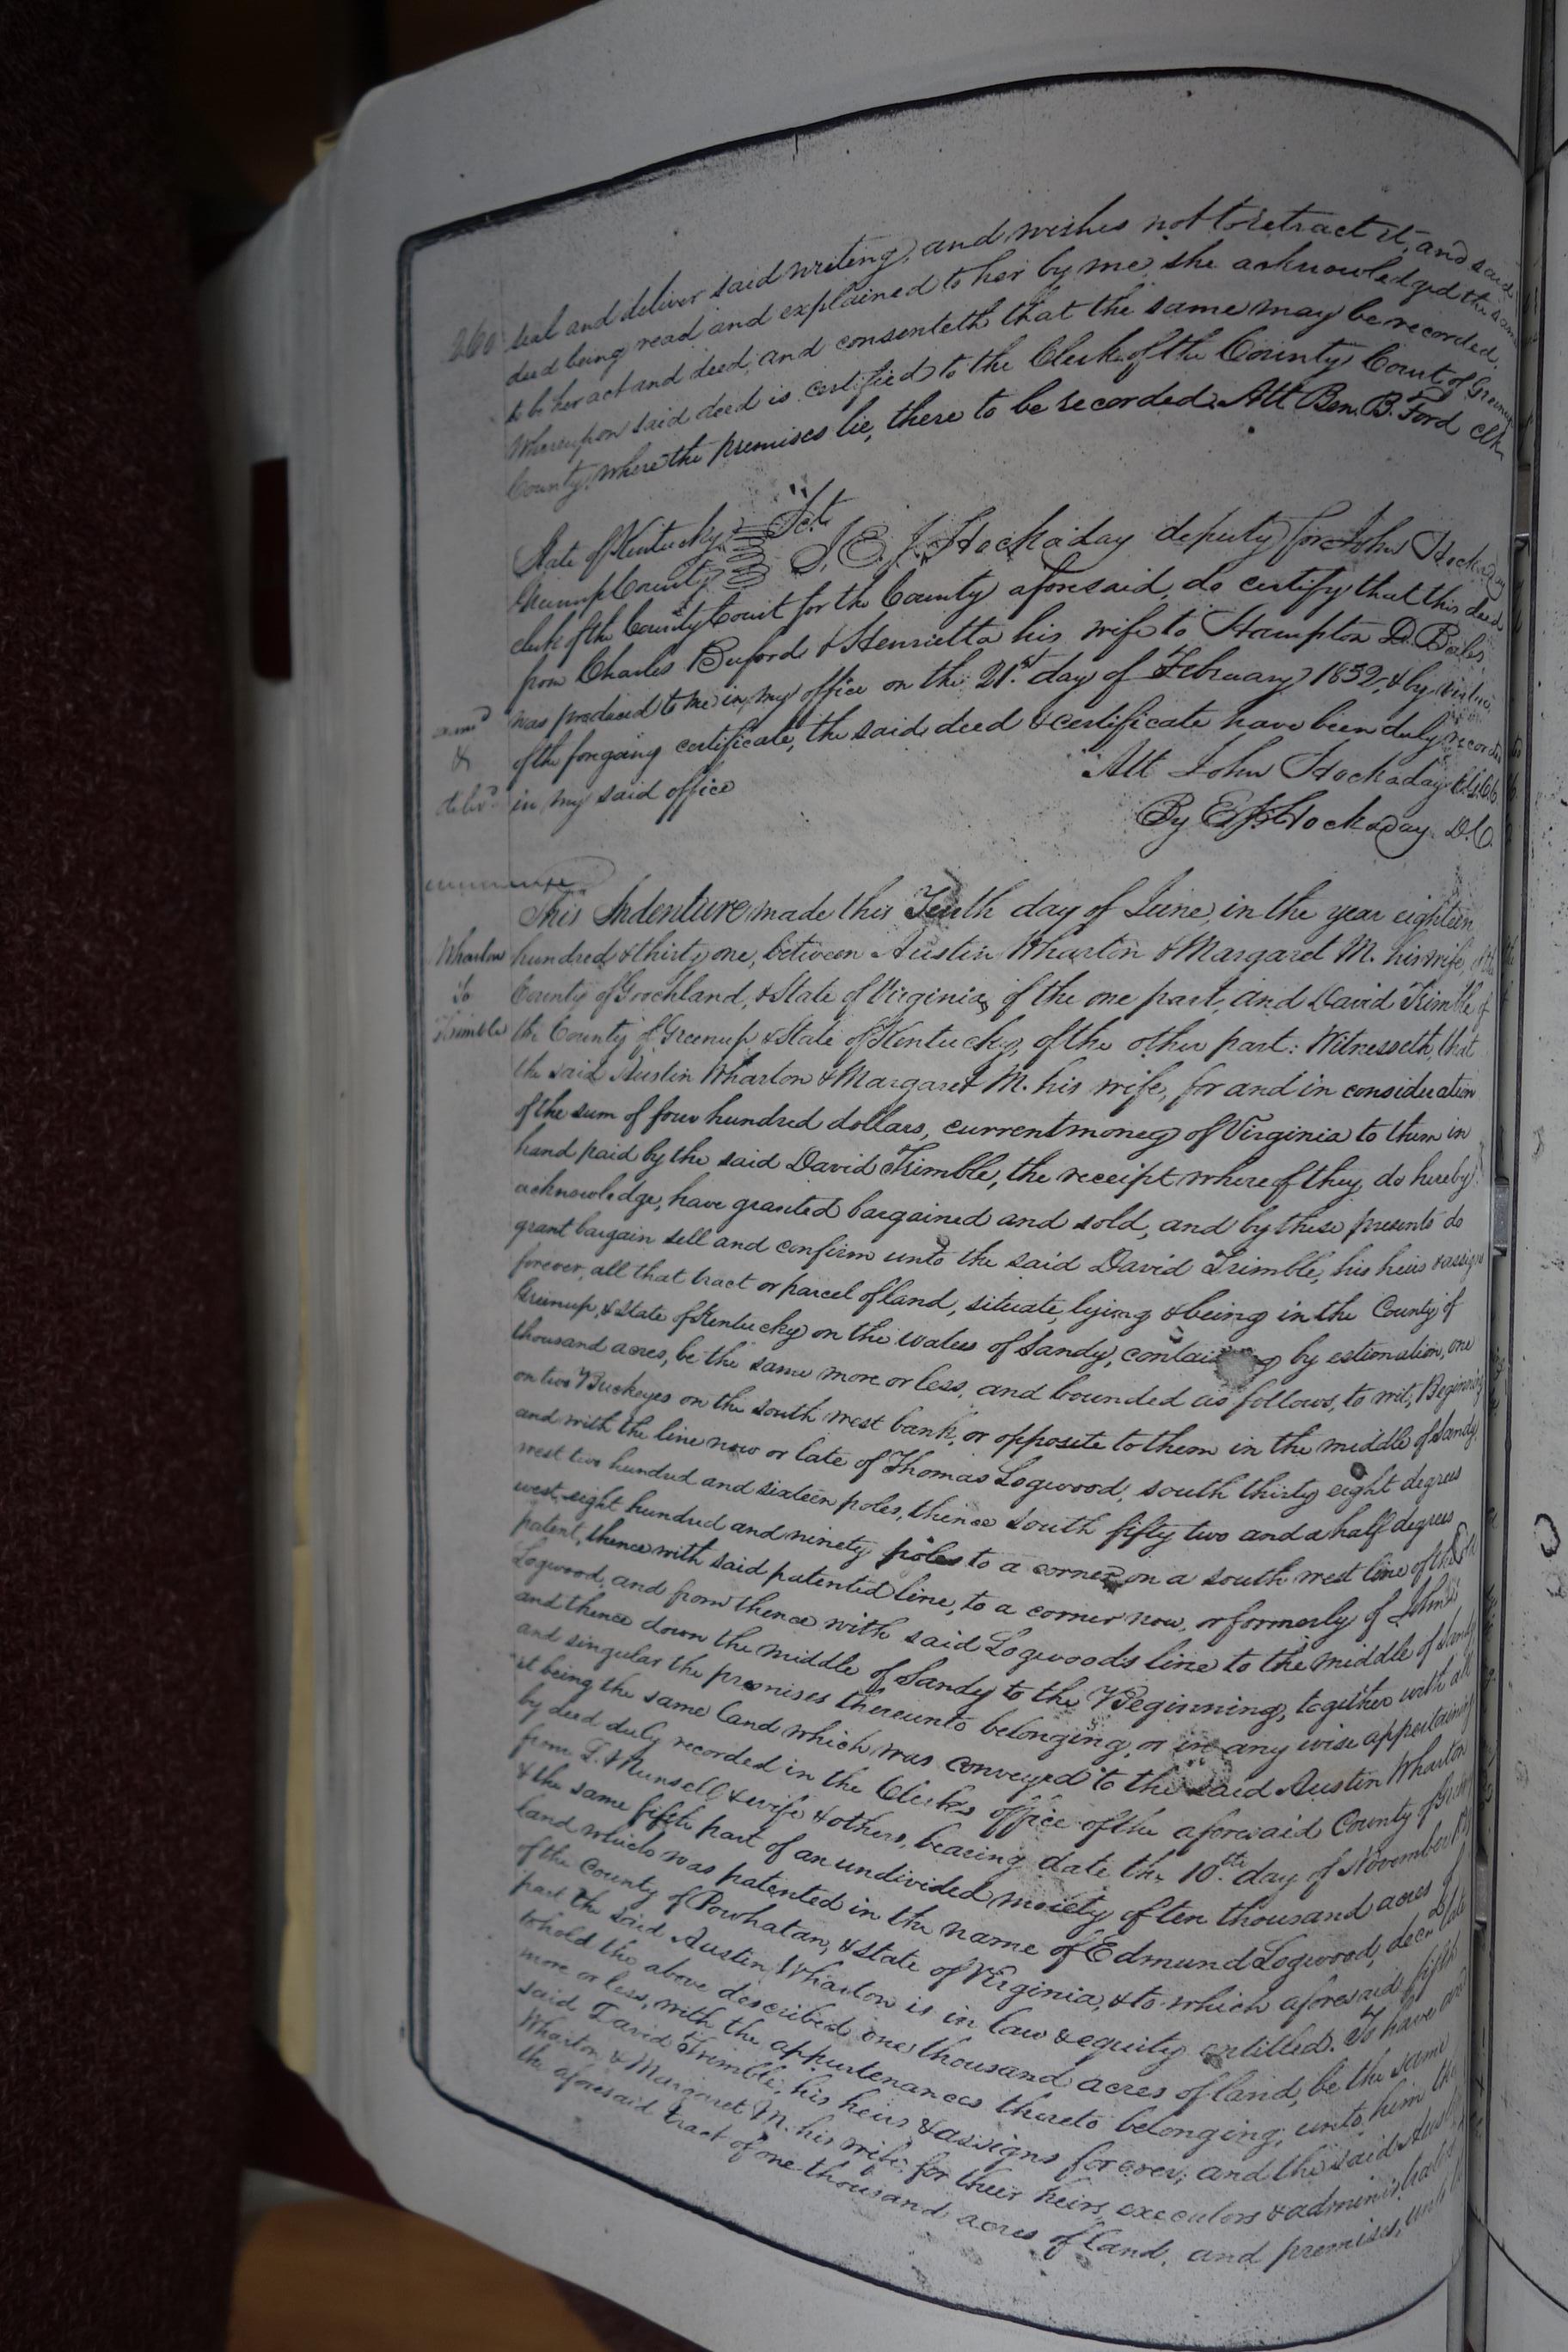 260 seal and deliver said writing, and wishes not to retract it, and said
deed being read and explained to her by me, she acknowledged the same
to be her act and deed, and consenteth that the same may be recorded.
Whereupon said deed is certified to the Clerk of the County Court of Greenup
County, where the premises lie, there to be recorded. Att Ben. B. Ford clk
State of Kentucky Sct.
Greenup County I, E. J. Hockaday deputy for John Hockaday
clerk of the County Court for the County aforesaid, do certify that this deed
from Charles Buford & Henrietta his wife to Hampton D. Boiles,
was produced to me in my office on the 21.st day of February 1832, & by virtue
& of the foregoing certificate, the said deed & certificate have been duly recorded
deliv.d in my said office
Att John Hockaday
By E J Hockaday D.C.
This Indenture made this Tenth day of June, in the year eighteen
Wharton hundred & thirty one, between Austin Wharton & Margaret M. his wife, of the
To County of Goochland, & State of Virginia, of the one part, and David Trimble of
Trimble the County of Greenup & State of Kentucky, of the other part: Witnesseth, that
the said Austin Wharton & Margaret M. his wife, for and in consideration
of the sum of four hundred dollars, current money of Virginia to them in
hand paid by the said David Trimble, the receipt whereof they do hereby
acknowledge, have granted bargained and sold, and by these presents do
grant bargain sell and confirm unto the said David Trimble, his heirs & assigns
forever, all that tract or parcel of land, situate, lying & being in the County of
Greenup, & State of Kentucky on the waters of Sandy, containing by estimation, one
thousand acres, be the same more or less, and bounded as follows, to wit; Beginning
on two Buckeyes on the south west bank, or opposite to them in the middle of Sandy.
and with the line now or late of Thomas Logwood, south thirty eight degrees
west two hundred and sixteen poles, thence south fifty two and a half degrees
west, eight hundred and ninety poles to a corner on a south west line of the
patent, thence with said patented line, to a corner now, or formerly of John
Logwood, and from thence with said Logwoods line to the middle of Sandy
and thence down the middle of Sandy to the Beginning, together with all
and singular the premises thereunto belonging, or in any wise appertaining
it being the same land which was conveyed to the said Austin Wharton
by deed duly recorded in the Clerks office of the aforesaid County of
from L. Munsell & wife & others, bearing date the 10.th day of November
& the same fifth part of an undivided moiety of ten thousand acres of
land which was patented in the name of Edmund Logwood, decd late
of the County of Powhatan, & State of Virginia, & to which aforesaid fifth
part the said Austin Wharton is in law & equity entitled. To have and
to hold the above described one thousand acres of land, be the same
more or less, with the appurtenances thereto belonging, unto him the
said David Trimble, his heirs & assigns forever; and the said Austin
Wharton & Margaret M. his wife, for their heirs, executors & administrators
the aforesaid tract of one thousand acres of land, and premises, unto